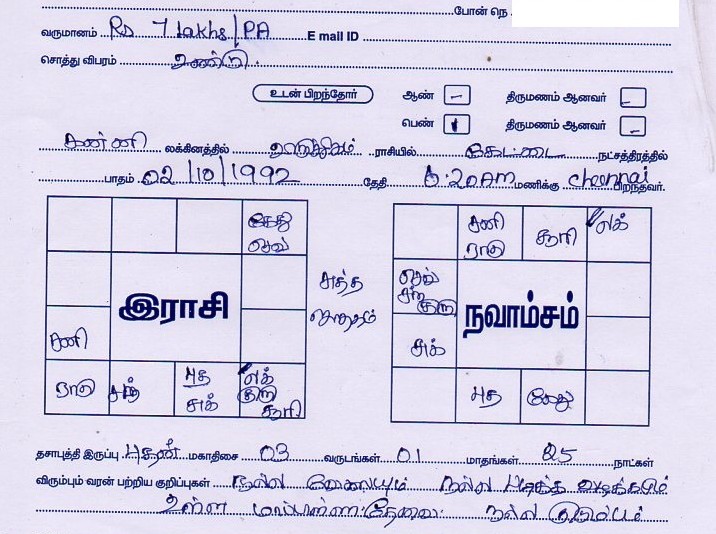 போன் நெ
வருமானம் Rs 7 Lakhs/PA E mail ID
சொத்து விபரம் உண்டு.
உடன் பிறந்தோர் ஆண் – திருமணம் ஆனவர் –
பெண் 1 திருமணம் ஆனவர் –
கன்னி லக்கினத்தில் விருச்சிகம் ராசியில் கேட்டை நட்சத்திரத்தில்
பாதம் 02/10/1992 தேதி 6:20AM மணிக்கு Chennai பிறந்தவர்.
கேது
செவ்
இராசி
சனி
ராகு சந் புத சுக் லக் குரு சூரி
சுத்த
ஜாதகம்
சனி ராகு சூரி லக்
செவ் சந் குரு
நவாம்சம்
சுக்
புத கேது
தசாபுத்தி இருப்பு புதன் மகாதிசை 03 வருடங்கள் 01 மாதங்கள் 25 நாட்கள்
விரும்பும் வரன் பற்றிய குறிப்புகள் நல்ல வேலையும் நல்ல
உள்ள மாப்பிள்ளை தேவை. நல்ல குடும்பம்